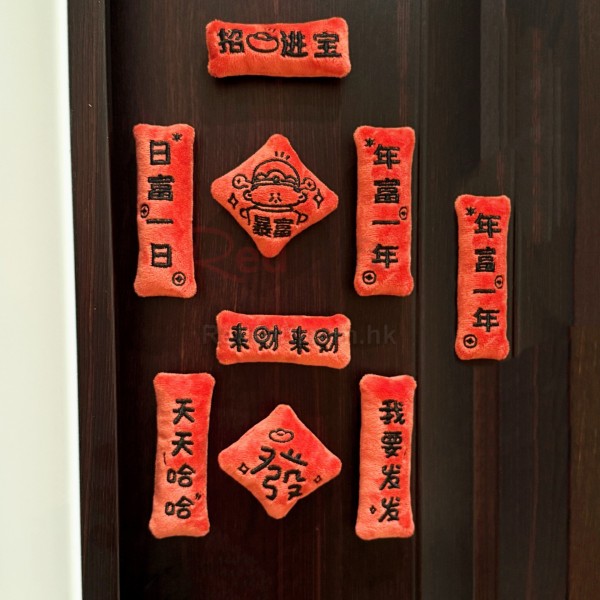 招進宝
日富一日
暴富
年富一年
年富一年
来财来财
天天哈哈
發
我要发发
Red